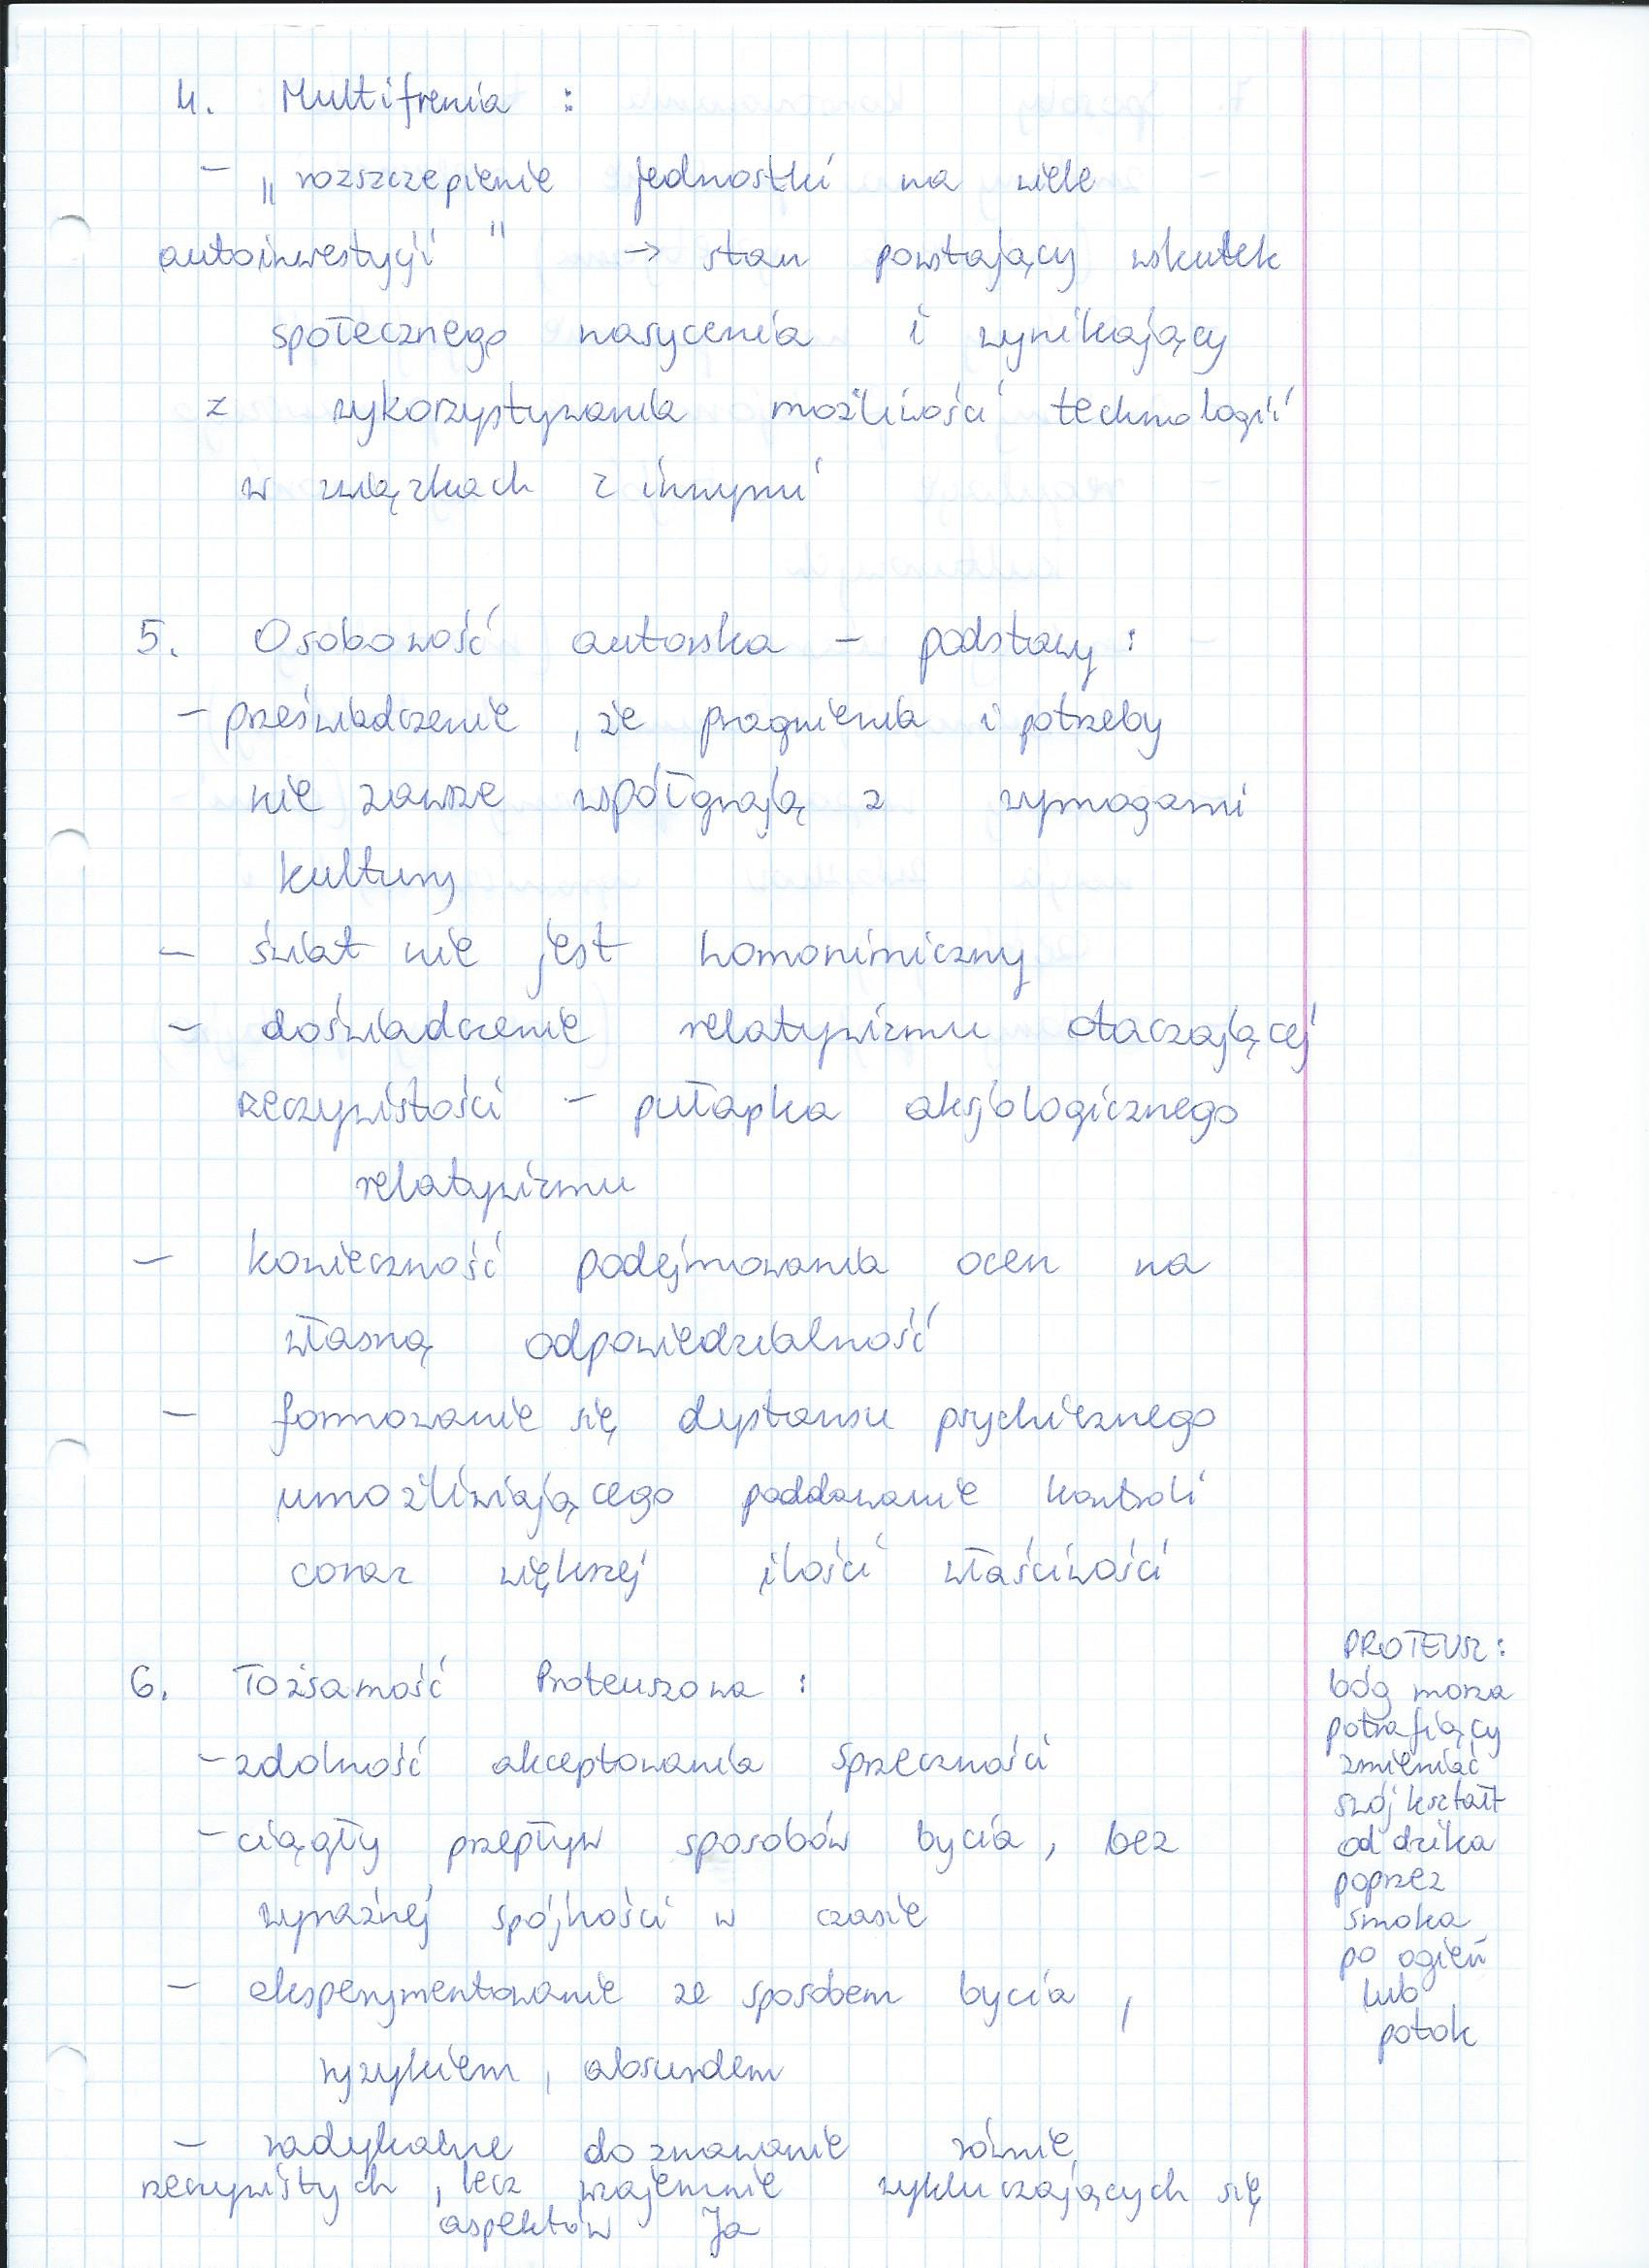 4. Multifrenia :
– „rozszczepienie jednostki na wiele
autoinwestycji" → stan powstający wskutek
społecznego nasycenia i wynikający
z wykorzystywania możliwości technologii
w związkach z innymi
5. Osobowość autorska – podstawy :
– przeświadczenie, że pragnienia i potrzeby
nie zawsze współgrają z wymogami
kultury
– świat nie jest homonimiczny
– doświadczenie relatywizmu otaczającej
rzeczywistości – pułapka aksjologicznego
relatywizmu
– konieczność podejmowania ocen na
własną odpowiedzialność
– formowanie się dystansu psychicznego
umożliwiającego poddawanie kontroli
coraz większej ilości właściwości
6. Tożsamość Proteuszowa :
– zdolność akceptowania sprzeczności
– ciągły przepływ sposobów bycia, bez
wyraźnej spójności w czasie
– eksperymentowanie ze sposobem bycia,
ryzykiem, absurdem
– radykalne doznawanie równie
rzeczywistych, lecz wzajemnie wykluczających się
aspektów Ja
PROTEUSZ:
bóg morza
potrafiący
zmieniać
swój kształt
od dzika
poprzez
smoka
po ogień
lub
potok